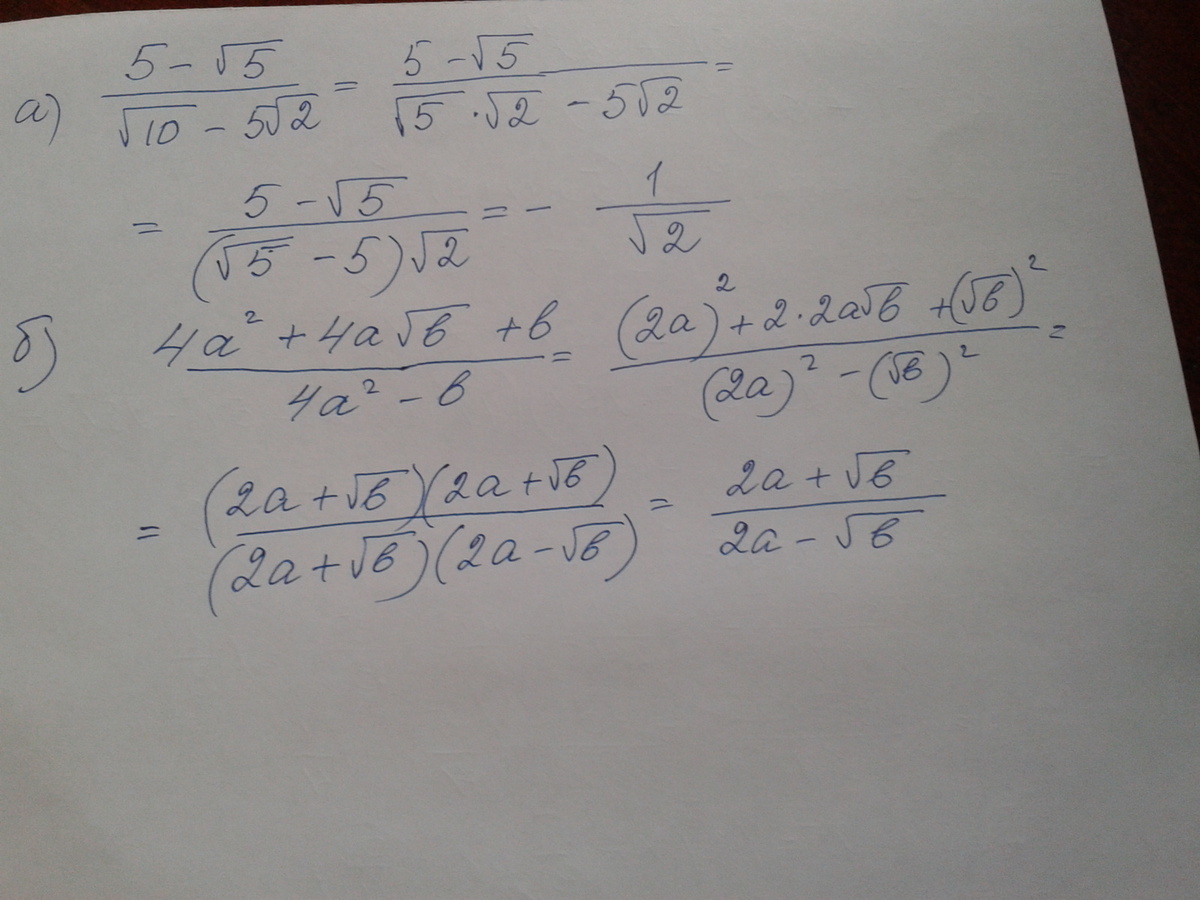 а) (5 - √5)/(√10 - 5√2) = (5 - √5)/(√5 · √2 - 5√2) =
= (5 - √5)/((√5 - 5)√2) = - 1/√2
б) (4a² + 4a√b + b)/(4a² - b) = ((2a)² + 2·2a√b + (√b)²)/((2a)² - (√b)²) =
= ((2a + √b)(2a + √b))/((2a + √b)(2a - √b)) = (2a + √b)/(2a - √b)